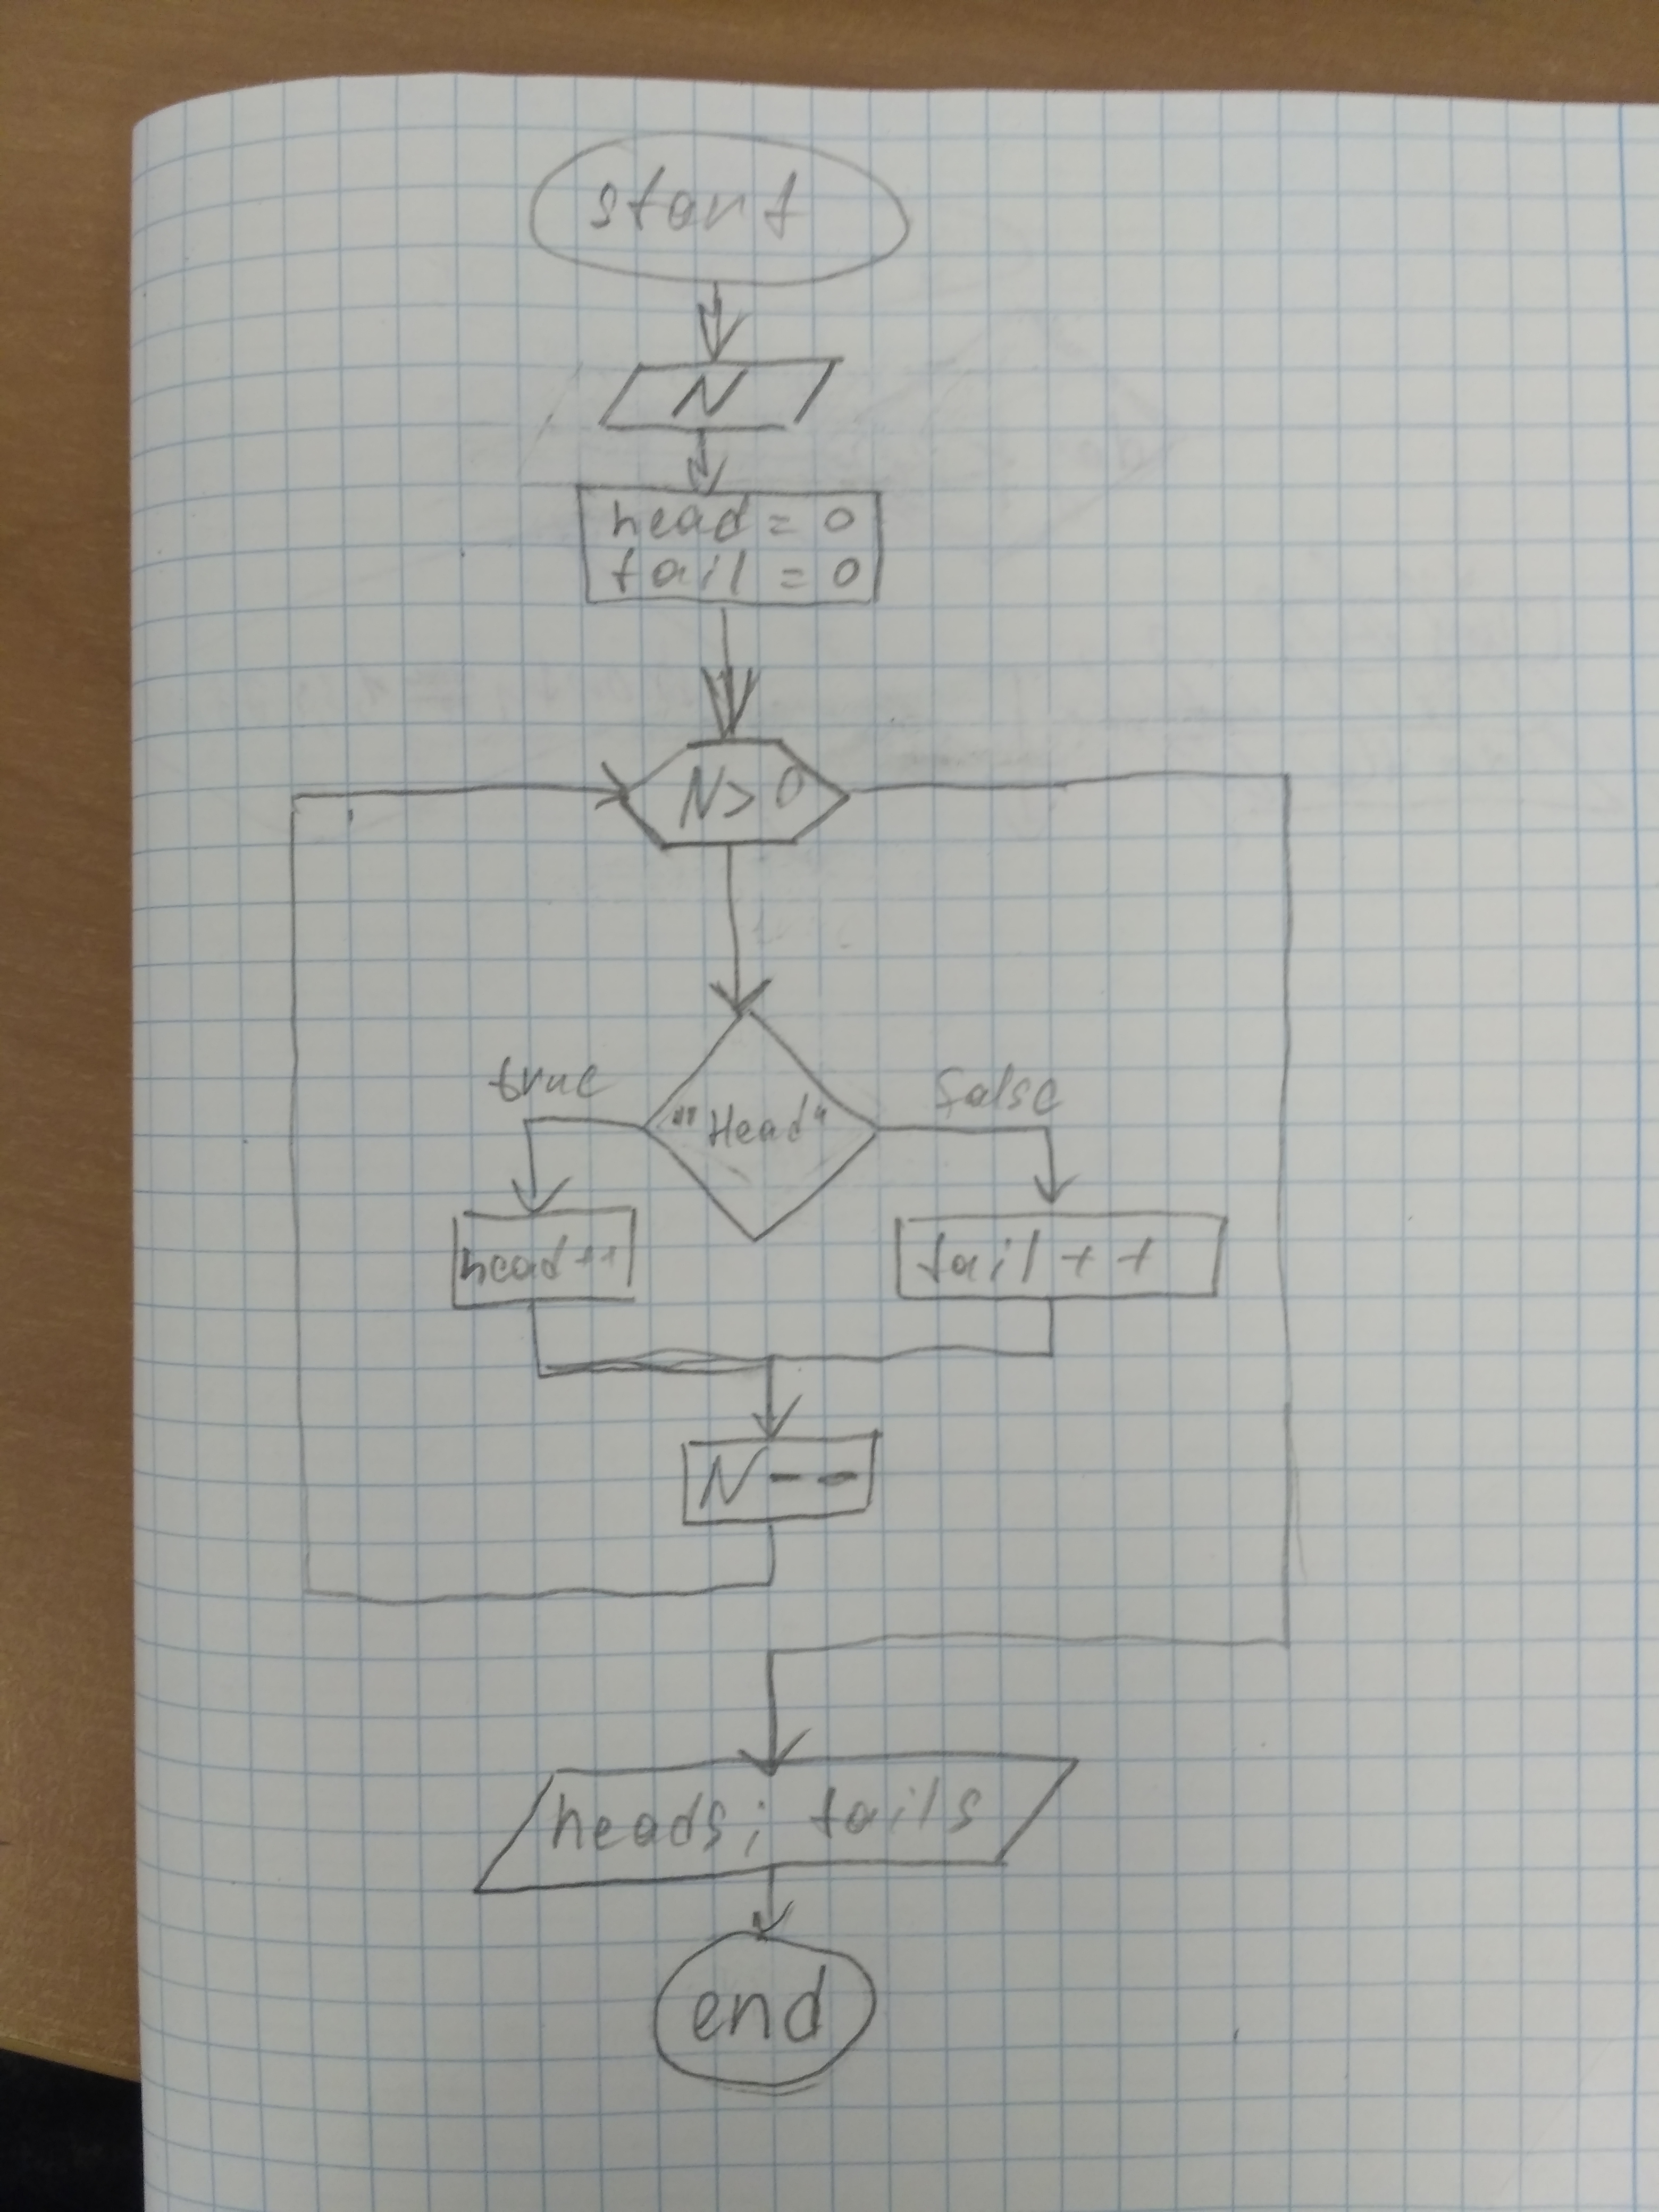 start
N
head = 0
tail = 0
N > 0
true
false
"Head"
head++
tail++
N--
heads; tails
end